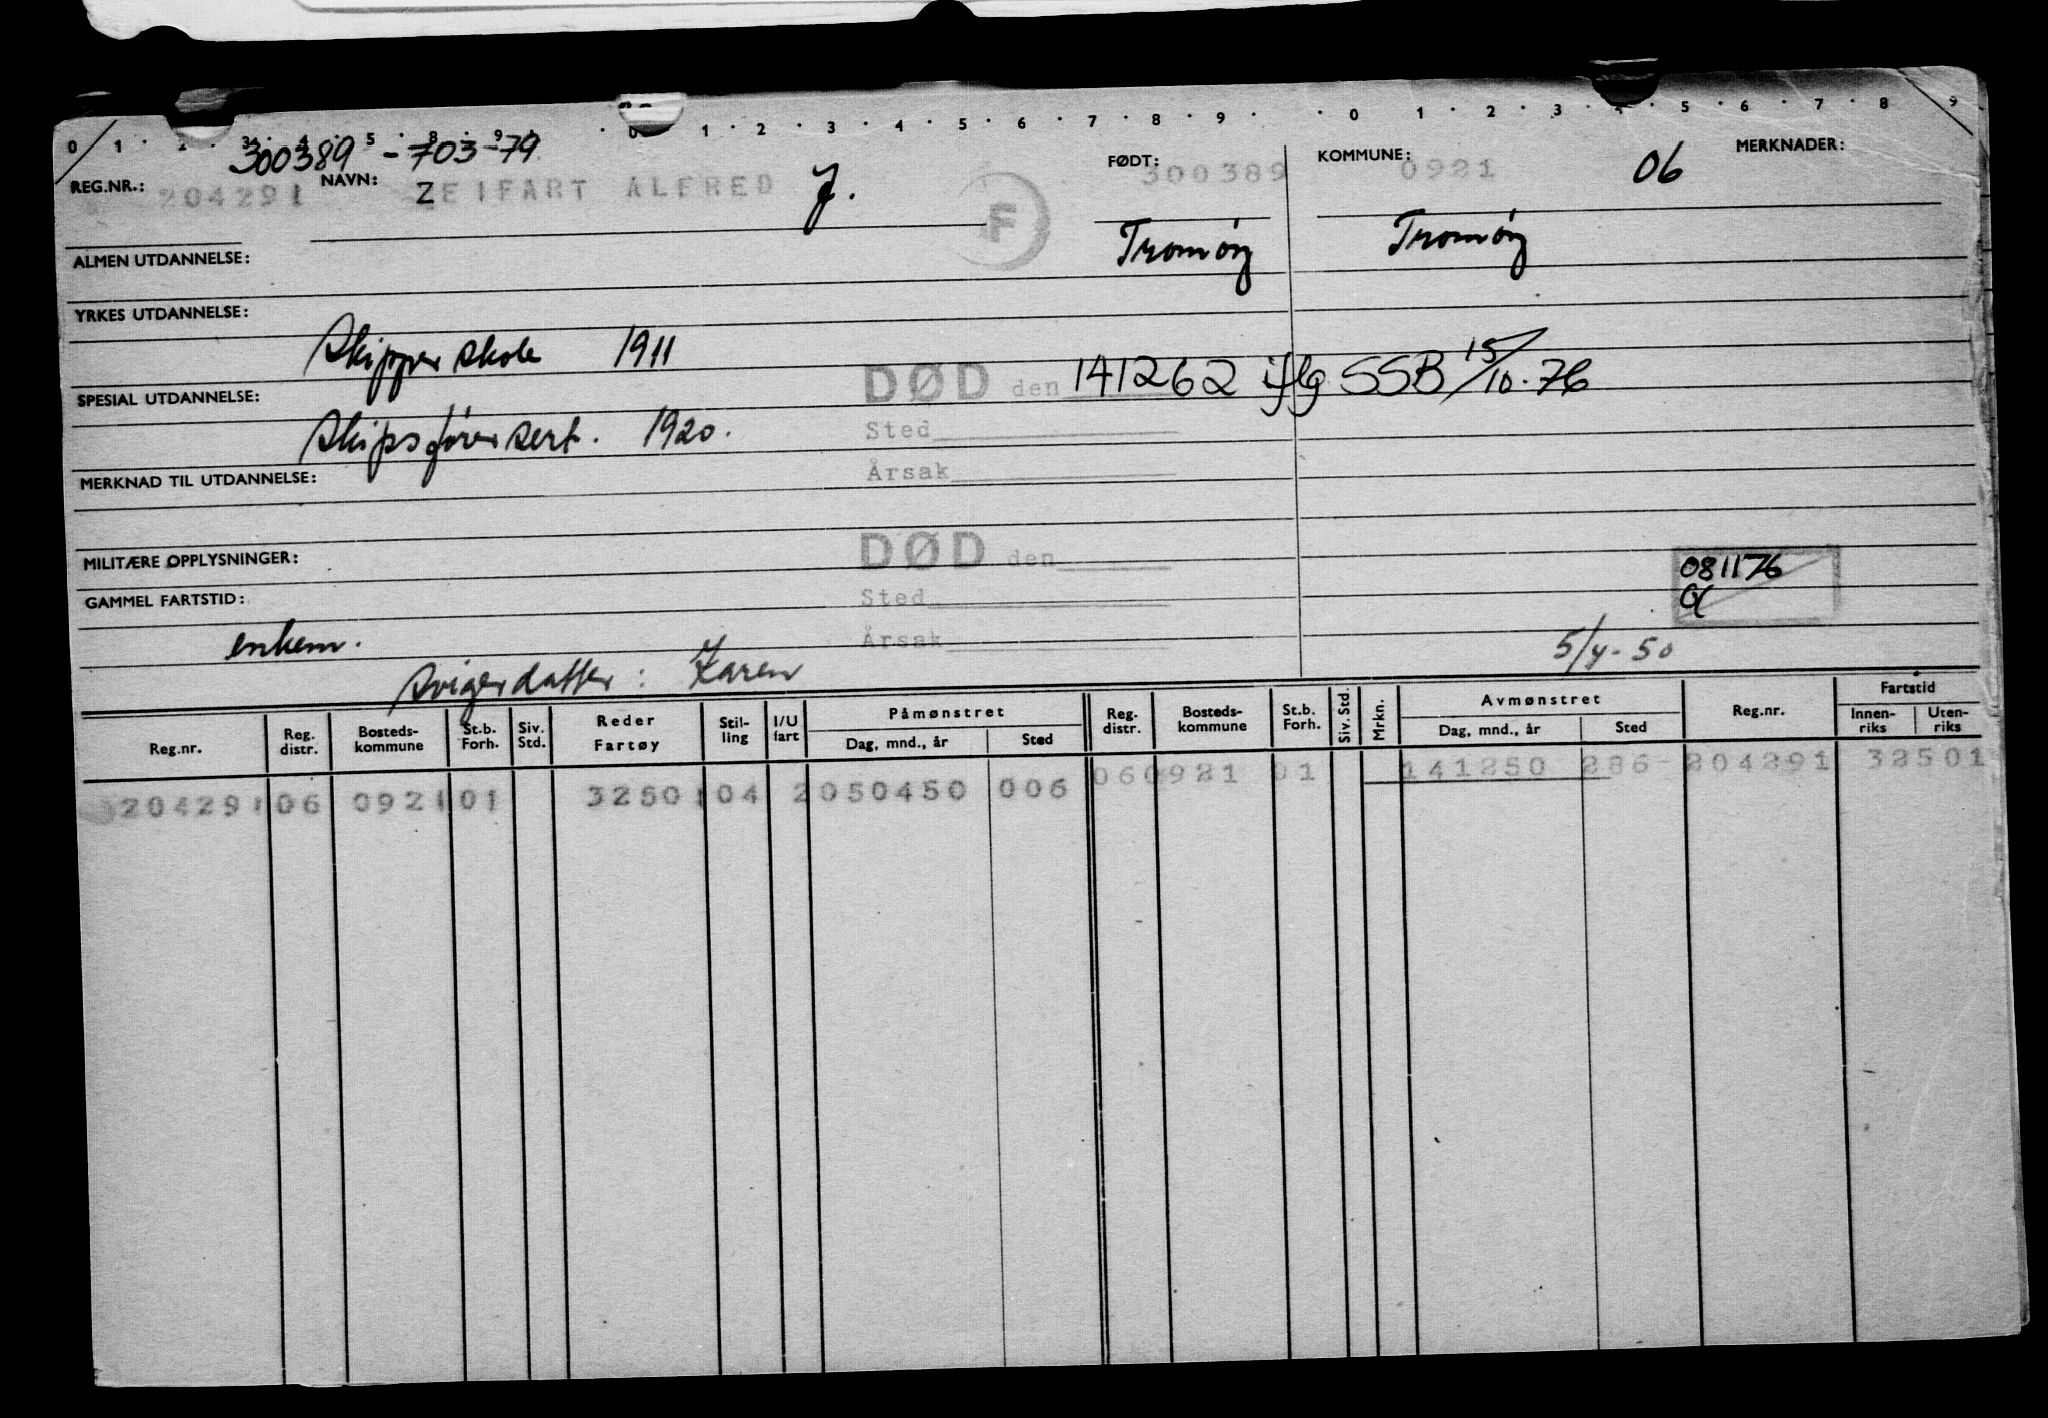 0 1 · 2 · 3 · 4 · 5 · 8 · 9 · · 0 · 1 · 2 · 3 · 4 · 5 · 6 · 7 · 8 · 9 · · 0 · 1 · 2 · 3 · 4 · 5 · 6 · 7 · 8 · 9
300389 - 703-79
REG.NR.: 204291 NAVN: Z ZEIFART ALFRED J. F FØDT: 300389 KOMMUNE: 0921 06 MERKNADER:
Tromøy Tromøy
ALMEN UTDANNELSE:
YRKES UTDANNELSE:
Skipperskole 1911
DØD den 141262 iflg SSB 15/10-76
SPESIAL UTDANNELSE:
Skipsførersert. 1920.
Sted
Årsak
MERKNAD TIL UTDANNELSE:
MILITÆRE OPPLYSNINGER:
DØD den
081176
GAMMEL FARTSTID:
Sted
Årsak
enkem.
5/4-50
svigerdatter: Karen
Reg.nr. Reg. distr. Bosteds-kommune St.b. Forh. Siv. Std. Reder Fartøy Stil-ling I/U fart Påmønstret Dag, mnd., år Sted Reg. distr. Bosteds-kommune St.b. Forh. Siv. Std. Mrkn. Avmønstret Dag, mnd., år Sted Reg.nr. Fartstid Innen-riks Uten-riks
204291 06 0921 01 32501 04 2 050450 006 06 0921 01 141250 286- 204291 32501